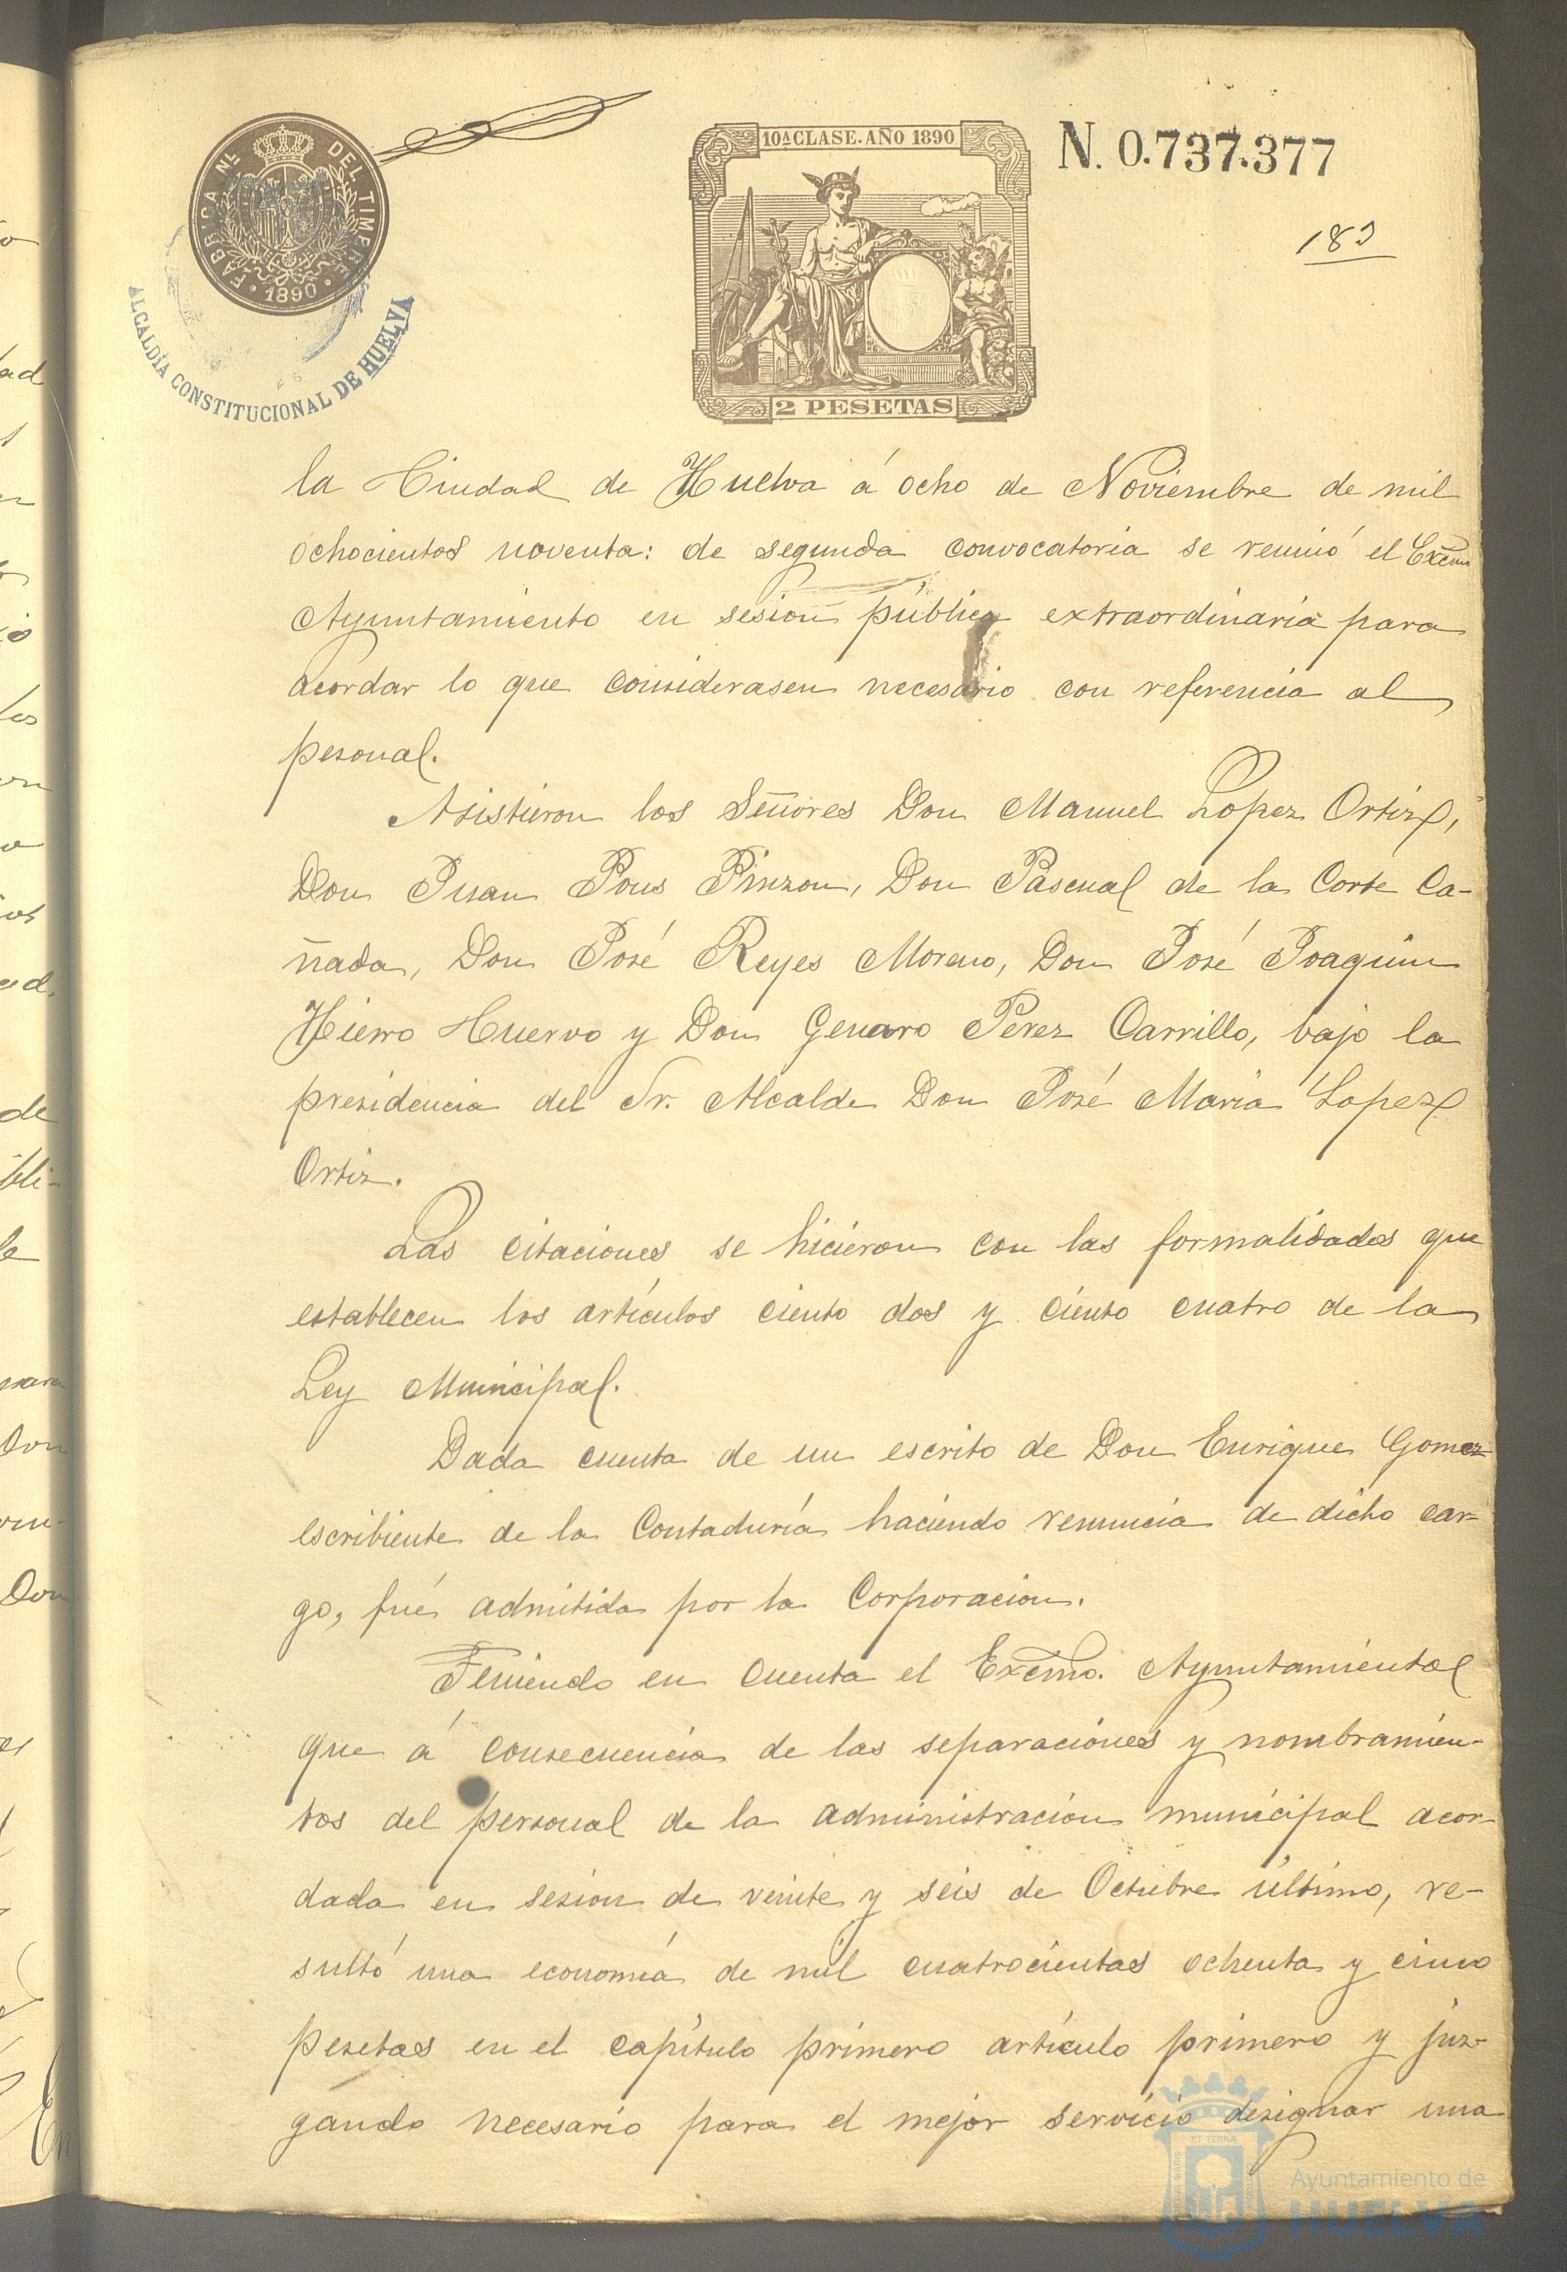 FÁBRICA NL. DEL TIMBRE
1890
ALCALDÍA CONSTITUCIONAL DE HUELVA
10ª CLASE. AÑO 1890
2 PESETAS
N. 0.737.377
la Ciudad de Huelva á ocho de Noviembre de mil
ochocientos noventa: de segunda convocatoria se reunió el Excmo
Ayuntamiento en sesion pública extraordinaria para
acordar lo que considerasen necesario con referencia al
pesonal.
Asistieron los Señores Don Manuel Lopez Ortiz,
Don Juan Pous Pinzon, Don Pascual de la Corte Ca-
ñada, Don José Reyes Moreno, Don José Joaquin
Hierro Huervo y Don Genaro Perez Carrillo, bajo la
presidencia del Sr. Alcalde Don José Maria Lopez
Ortiz.
Las citaciones se hicieron con las formalidades que
establecen los artículos ciento dos y ciento cuatro de la
Ley Municipal.
Dada cuenta de un escrito de Don Enrique Gomez
escribiente de la Contaduría haciendo renuncia de dicho car-
go, fué admitida por la Corporacion.
Teniendo en cuenta el Excmo. Ayuntamiento
que á consecuencia de las separaciones y nombramien-
tos del personal de la administración municipal acor-
dada en sesion de veinte y seis de Octubre último, re-
sultó una economía de mil cuatrocientas ochenta y cinco
pesetas en el capítulo primero artículo primero y juz-
gando necesario para el mejor servicio designar una
ET TERRÆ
Ayuntamiento de
HUELVA